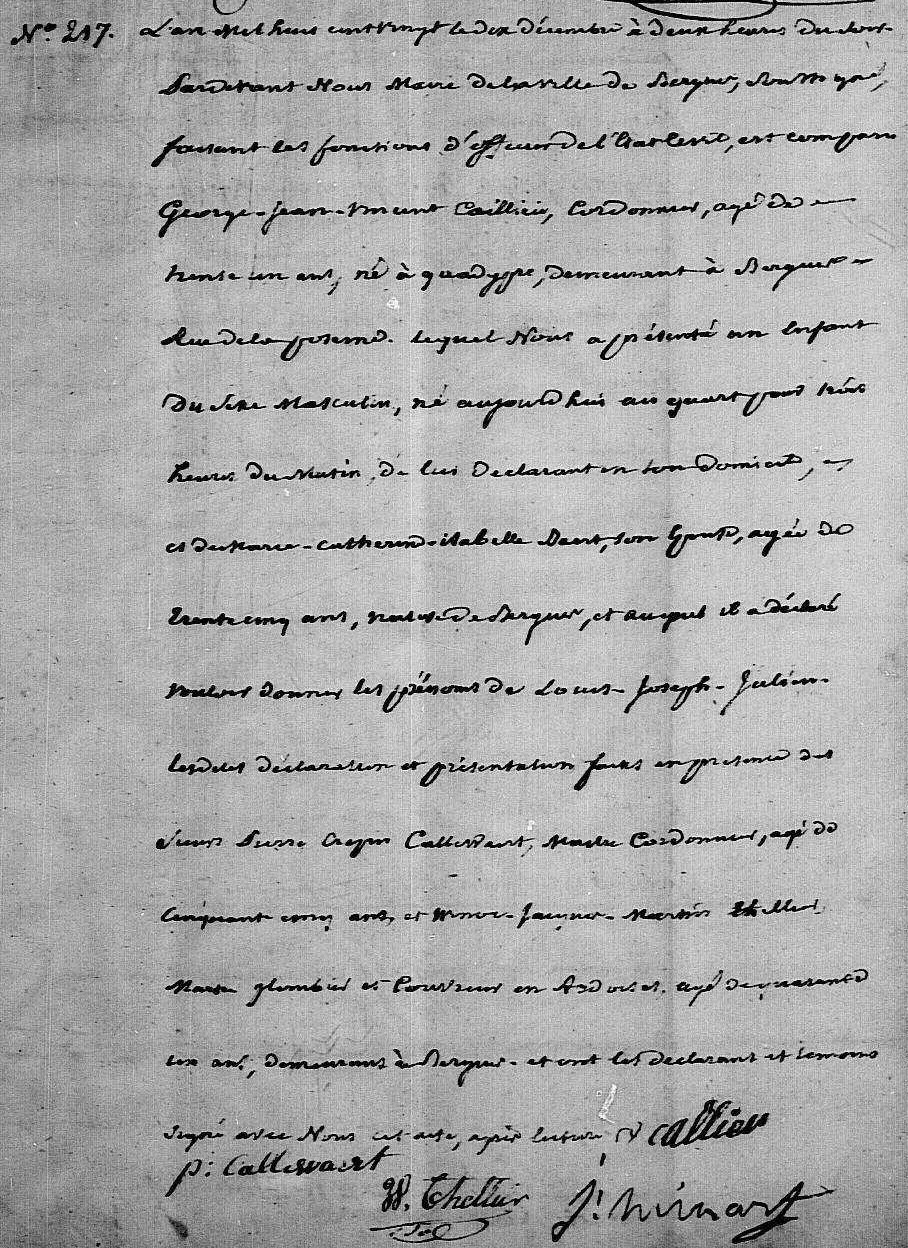 N° 217. L'an Mil huit cent vingt le dix décembre à deux heures du soir
Pardevant Nous Maire de la ville de Bergues, soussigné,
faisant les fonctions d'officier de l'Etat Civil, est comparu
George-Jean-Vincent Caillieu, Cordonnier, agé de
trente un ans, né à quadypre, demeurant à Bergues
Rue de la poterne. lequel Nous a présenté un Enfant
Du Sexe Masculin, né aujourd'hui au quart pour trois
heures du Matin, de lui Declarant en son domicile,
et de Marie-Catherine-isabelle Daert, son Epouse, agée de
trente cinq ans, native de Bergues, et auquel il a déclaré
vouloir donner les prénoms de Louis-Joseph-Julien.
lesdites déclaration et présentation faites en presence des
sieurs Pierre Crepin Callewaert, Maitre Cordonnier, agé de
Cinquante cinq ans, et Winoc-Jacques-Martin thellier
Maitre plombier et Couvreur en Ardoises, agé de quarante
un ans, demeurans à Bergues. et ont les declarant et temoins
signé avec Nous cet acte, après lecture V callieu
p: Callewaert
W. Thellier